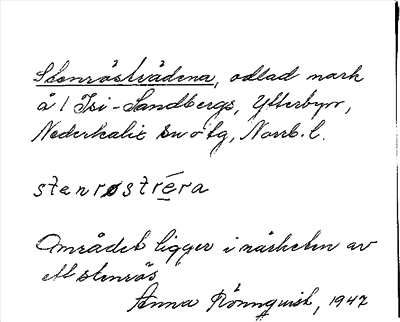 Stenröstrådena, odlad mark
å 1 Isi-Sandbergs, Ytterbyn,
Nederkalix sn o tg, Norrb. l.
stenrøstréra
Området ligger i närheten av
ett stenrös
Anna Rönnquist, 1947